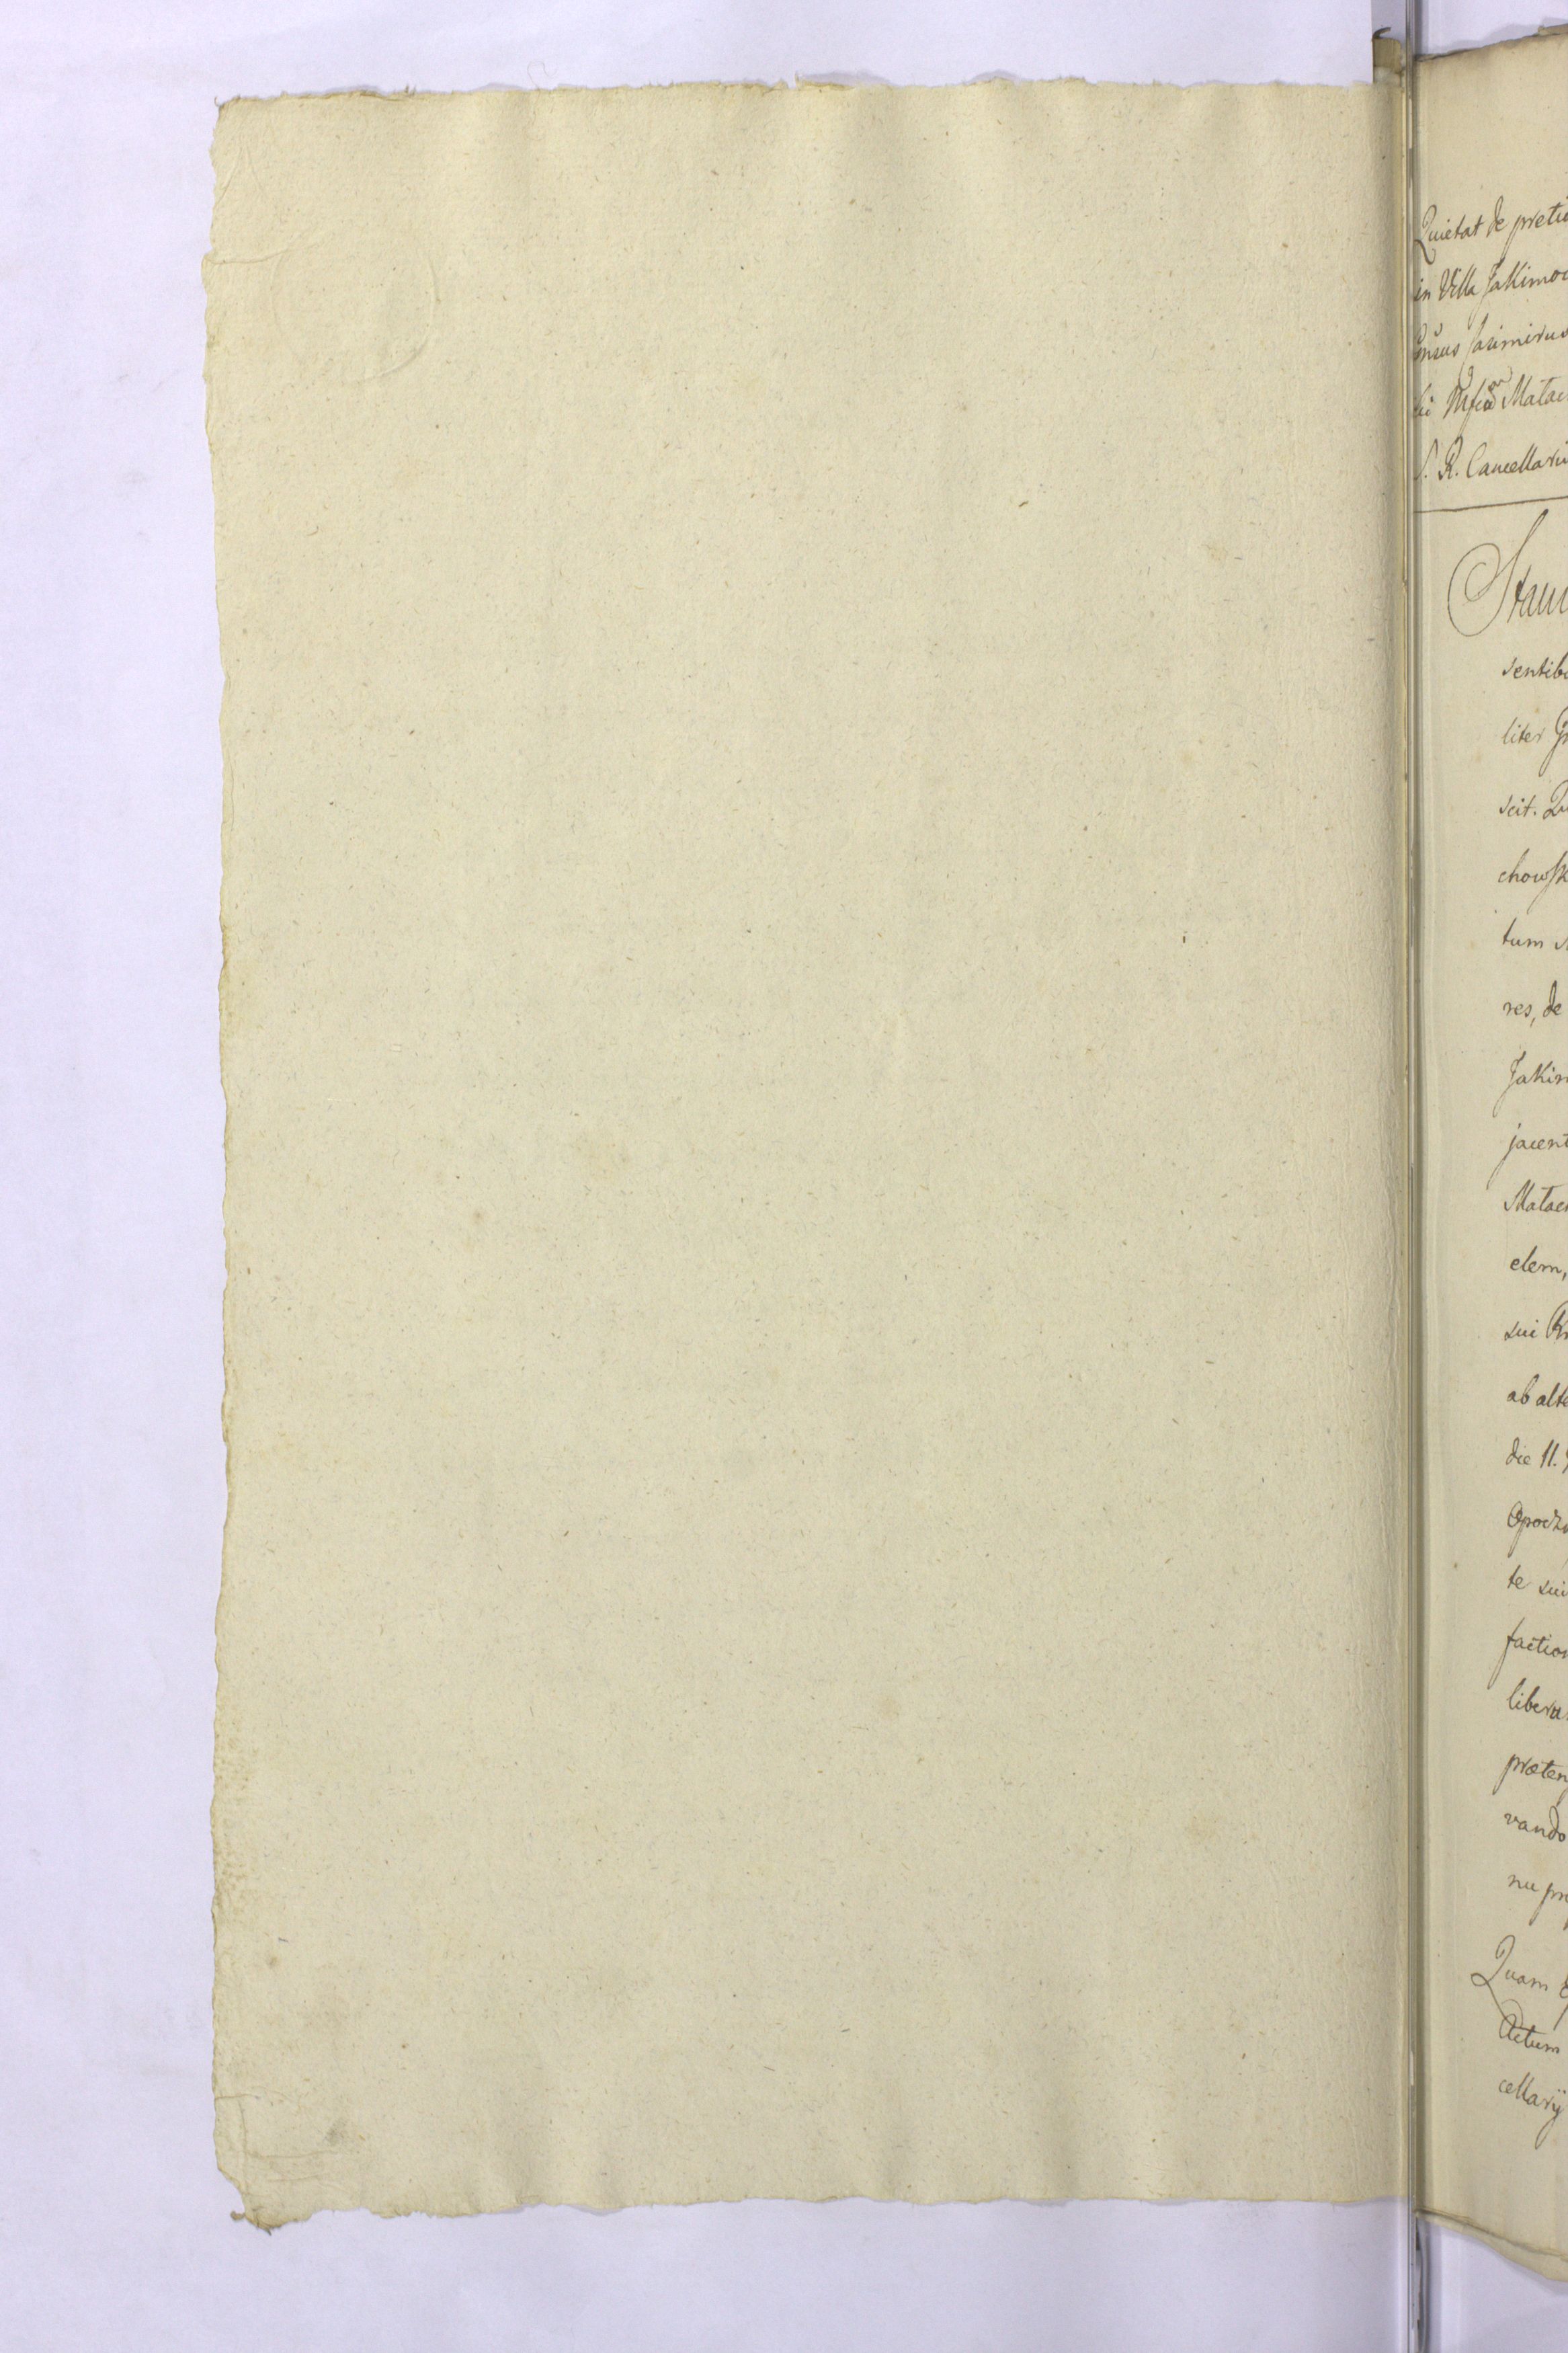 Quietat de pretio
in Villa Jakimow
Casimirus
Matac
S. R. Cancellariu
Stani
sentibu
liter
scit. Qu
chowsk
tum
res, de
Jakim
jacent
Matac
elem,
sui
ab alte
die 11.
Opoczn
te sui
faction
libera
præten
vando
nu pr
Quam
Actum
cellarij